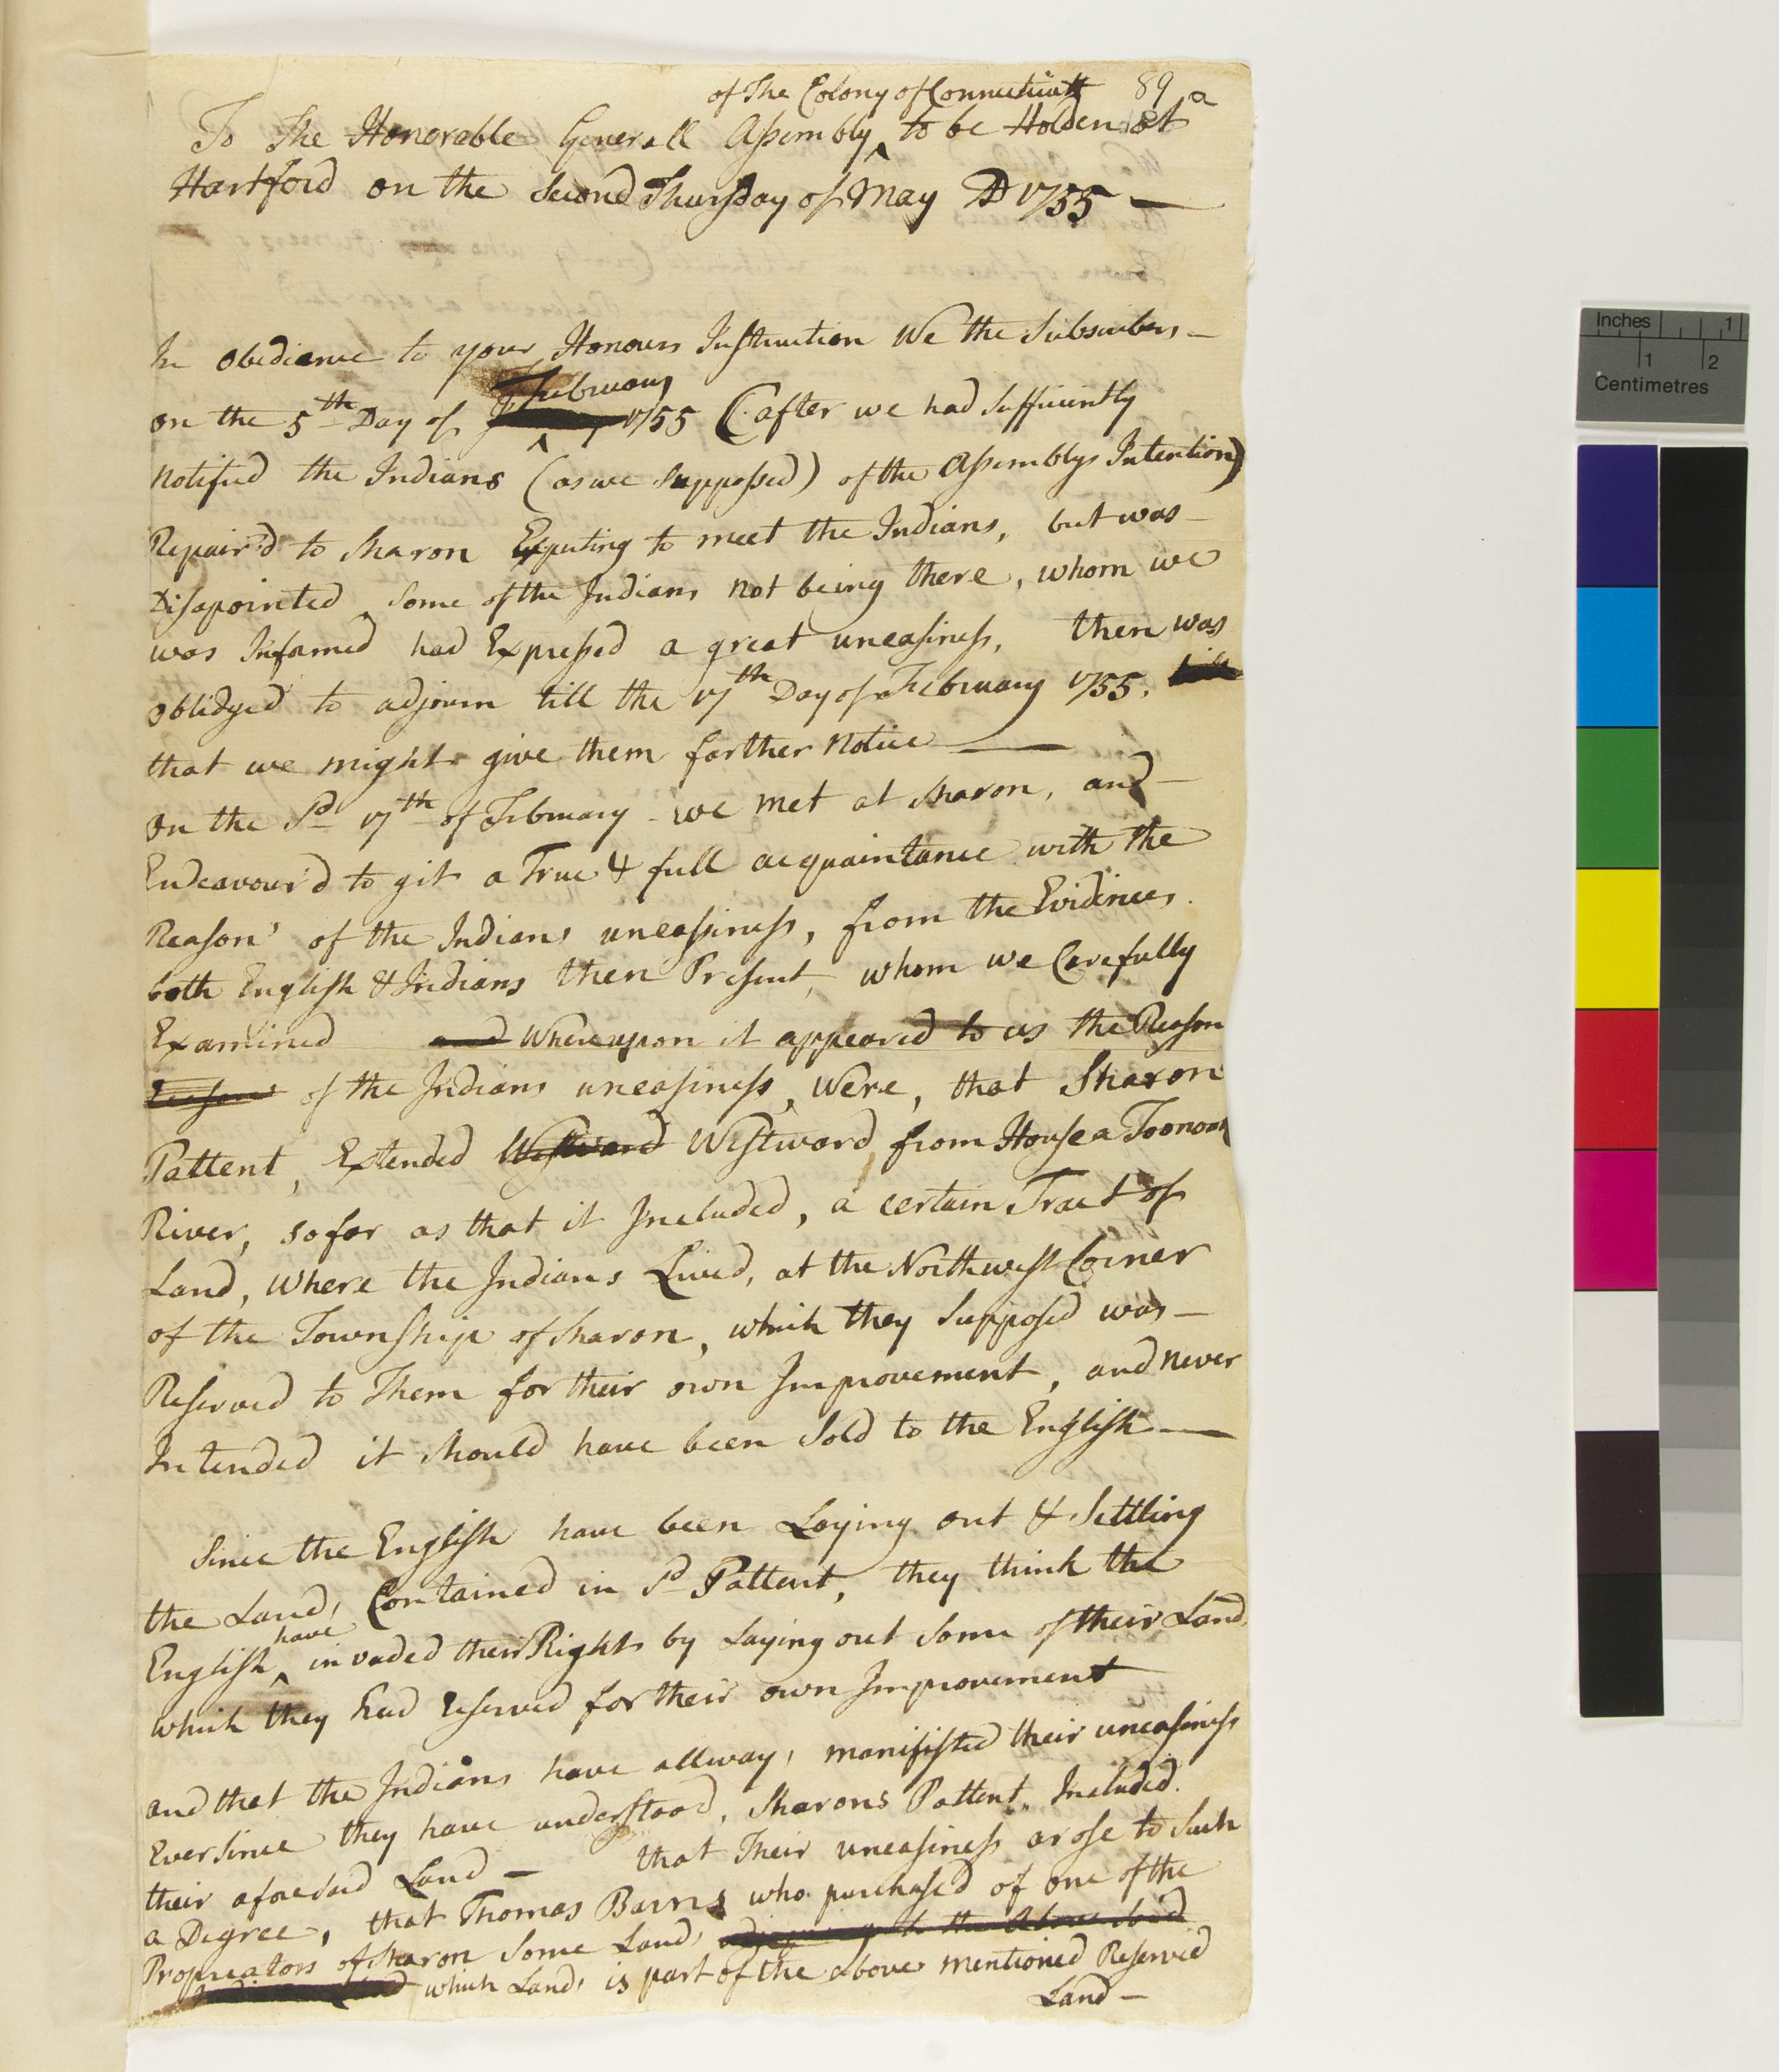 of The Colony of Connecticutt 89 a
To The Honorable Generall Assembly ^ to be Holden at
Hartford on the Second Thursday of May AD 1755 —
In obedience to your Honours Instruction We the Subscribers —
on the 5th Day of February 1755 (after we had sufficiently
notified the Indians (as we supposed) of the Assemblys Intention)
Repair'd to Sharon Expecting to meet the Indians, but was —
Disapointed some of the Indians not being there, whom we
was Informed had Expressed a great uneasiness, then was
oblidged to adjourn till the 17th Day of February 1755,
that we might give them farther notice —
On the Sd 17th of February - we met at Sharon, and —
Endeavour'd to git a True & full acquaintance with the
Reasons of the Indians uneassiness, from the Evidences
both English & Indians then Present, whom we Carefully
Examined and Whereupon it appeared to us the Reason
of the Indians uneasiness, were, that Sharon
Pattent, Extended Westward Westward from Housea Toonook
River, so far as that it Included, a certain Tract of
Land, where the Indians Lived, at the Northwest Corner
of the Township of Sharon, which they Supposed was —
Reserved to Them for their own Improvement, and never
Intended it should have been Sold to the English —
Since the English have been Laying out & Settling
the Lands Contained in Sd Pattent, they think the
have
English ^ invaded their Rights by Laying out Some of their Land,
which they had reserved for their own Improvement
and that the Indians have allways manifisted their uneasiness
Ever since they have understood, Sharons Pattent, Included.
their aforesaid Land — that Their uneasiness arose to Such
a Degree, that Thomas Barns who purchased of one of the
Propriators of Sharon Some Lands
which Lands is part of the above mentioned Reserved
Land —